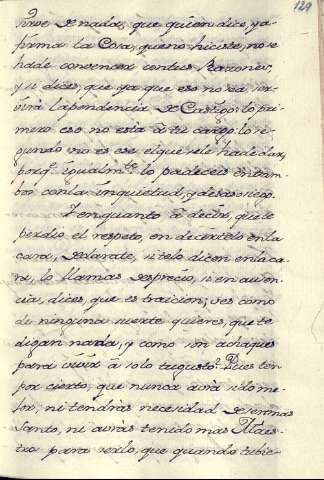 129
sirve de nada, que quien dice, y a-
firma la Cosa, que no hiciste, no se
ha de convencer con tus Razones,
y si dices, que ya que eso no sea ser-
virá la pendencia de Castigo: lo pri-
mero eso no está á tu cargo: lo se-
gundo no es ese el que se le ha de dar,
porq.e igualm.te lo padeceis entram-
bos con la inquietud, y desasosiego.
Y en quanto á decir, que te
perdio el respeto, en decirtelo en la
cara, declarate, si te lo dicen en la ca-
ra, lo llamas desprecio, si en ausen-
cia, dices, que es traicion; ves como
de ninguna suerte quieres, que te
digan nada, y como son achaques
para vivir á solo tu gusto? Pues ten
por cierto, que nunca avrá sido me-
jor, ni tendrás necesidad de ser mas
Santo, ni avrás tenido mas Maes-
tro para serlo, que quando tubie-